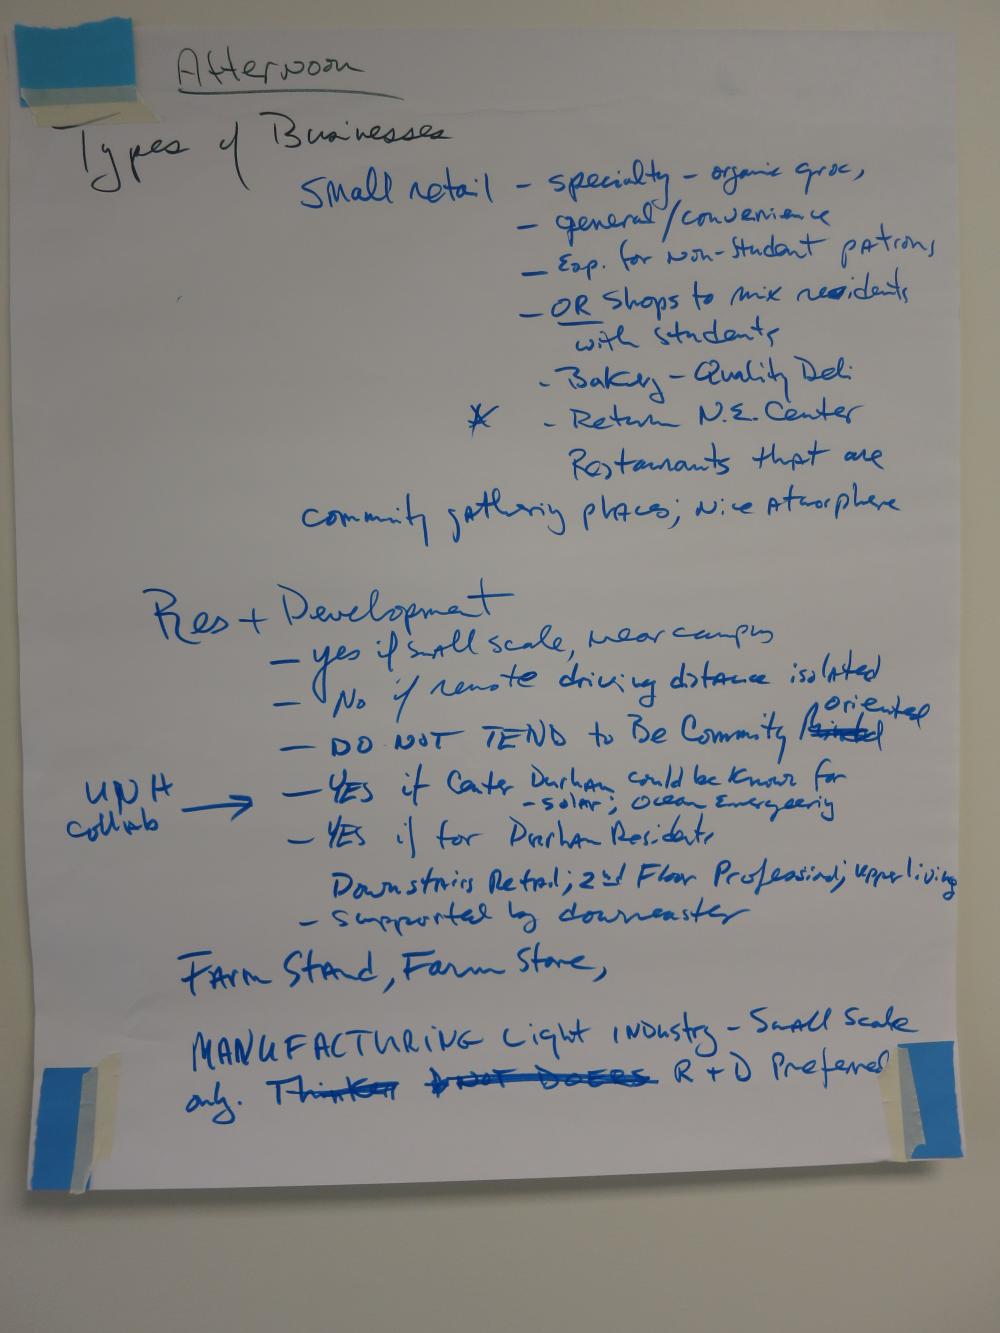 Afternoon
Types of Businesses
Small retail - specialty - organic groc,
- general/convenience
- Esp. for non-student patrons
- OR Shops to mix residents
with students
- Bakery - Quality Deli
* - Return N.E. Center
Restaurants that are
community gathering places; Nice Atmosphere
Res + Development
- yes if small scale, near campus
- No if remote driving distance isolated
- DO NOT TEND to Be Community oriented
UNH collab → - YES if Center Durham could be known for
- solar; Ocean Energeeriy
- YES if for Durham Residents
Downstairs Retail; 2nd Floor Professional; upper living
- supported by downeaster
FARM STAND, Farm Store,
MANUFACTURING Light INDUStry - Small Scale
only. Thinker NOT DOERS R + D Preferred